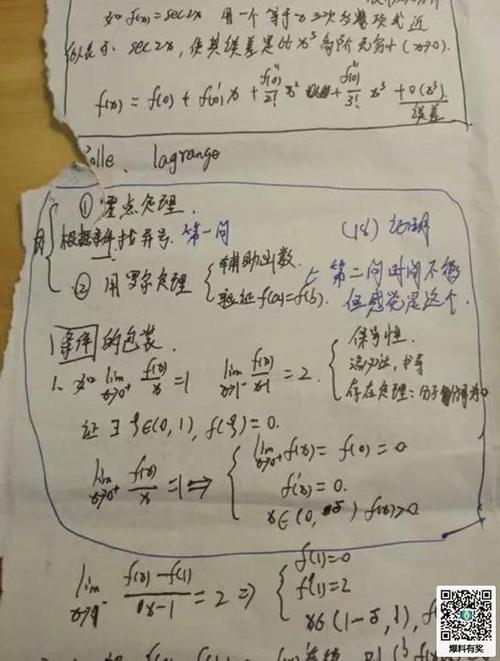 如 f(x)=sec2x 用一个等于 x 三次多项式近
似表示 sec2x, 使其误差是比 x³ 高阶无穷小 (x→0).
f(x) = f(0) + f'(0)x + f''(0)/2! x² + f'''(0)/3! x³ + o(x³)
误差
olle、lagrange
① 零点定理.
根据条件找异号. 第一问
(18) 证明
② 用罗尔定理 { 辅助函数.
验证 f(a)=f(b).
第二问时间不够
但感觉是这个.
1 条件的包装.
1. 如 lim x→0⁺ f(x)/x = 1 lim x→1⁻ f(x)/x-1 = 2. { 保号性.
洛必达, 求导
存在定理: 分子
证 ∃ ξ∈(0,1), f(ξ)=0.
lim x→0⁺ f(x)/x = 1 ⇒ { lim x→0⁺ f(x) = f(0) = 0
f'(x) = 0.
x∈(0, δ) f(x)>0
lim x→1⁻ f(x)-f(1)/x-1 = 2 ⇒ { f(1)=0
f'(1)=2
x∈(1-δ, 1), f
爆料有奖